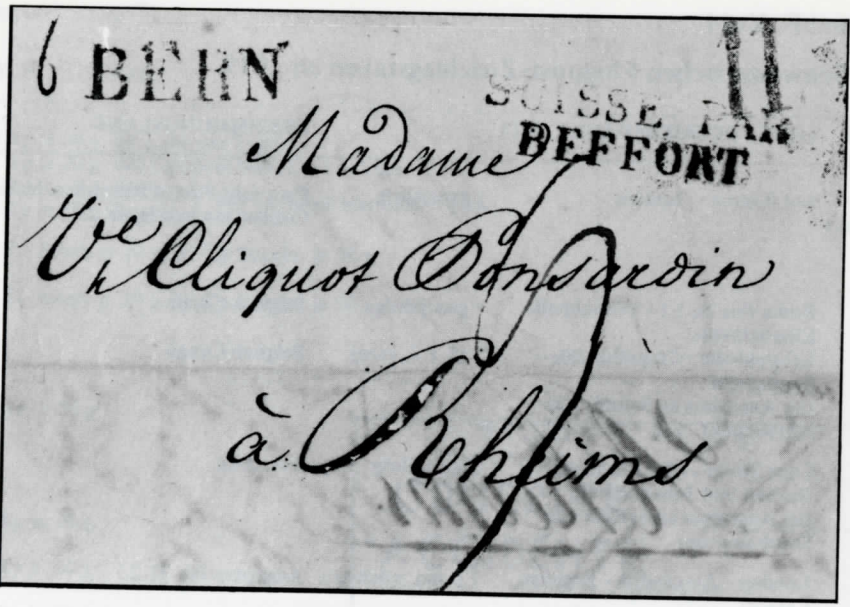 6 BERN
SUISSE PAR
BEFFORT
Madame
Ve Cliquot Ponsardin
à Rheims